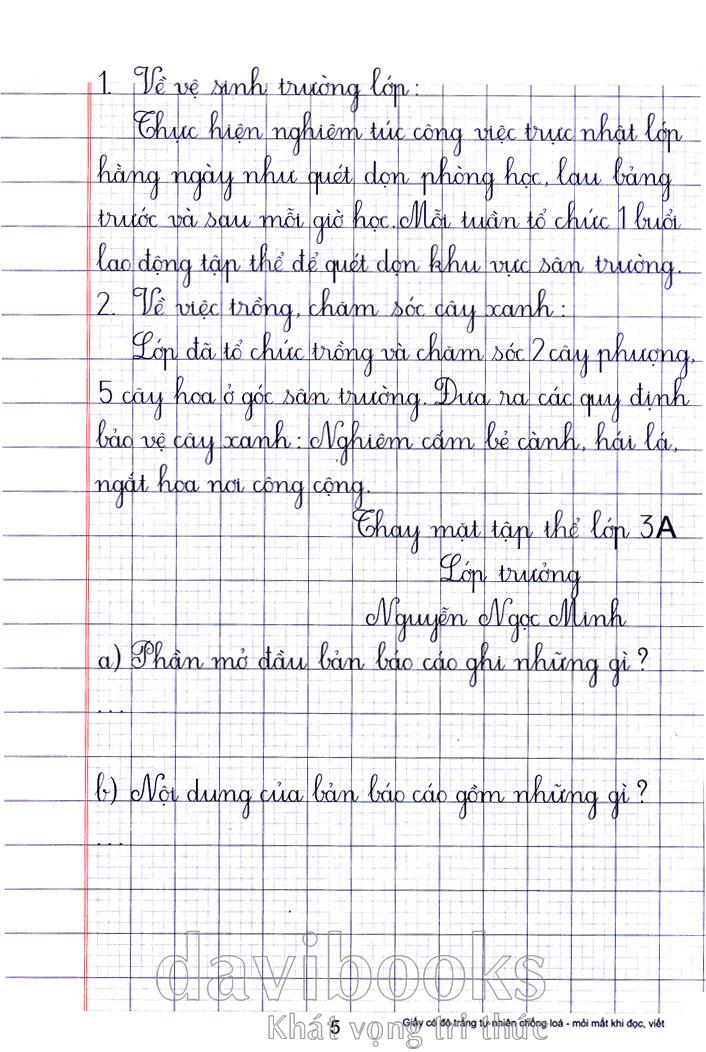 1. Về vệ sinh trường lớp:
Thực hiện nghiêm túc công việc trực nhật lớp
hằng ngày như quét dọn phòng học, lau bảng
trước và sau mỗi giờ học. Mỗi tuần tổ chức 1 buổi
lao động tập thể để quét dọn khu vực sân trường.
2. Về việc trồng, chăm sóc cây xanh:
Lớp đã tổ chức trồng và chăm sóc 2 cây phượng,
5 cây hoa ở góc sân trường. Đưa ra các quy định
bảo vệ cây xanh: Nghiêm cấm bẻ cành, hái lá,
ngắt hoa nơi công cộng.
Thay mặt tập thể lớp 3A
Lớp trưởng
Nguyễn Ngọc Minh
a) Phần mở đầu bản báo cáo ghi những gì?
...
b) Nội dung của bản báo cáo gồm những gì?
...
davibooks
Khát vọng tri thức
5
Giấy có độ trắng tự nhiên chống loá - mỏi mắt khi đọc, viết